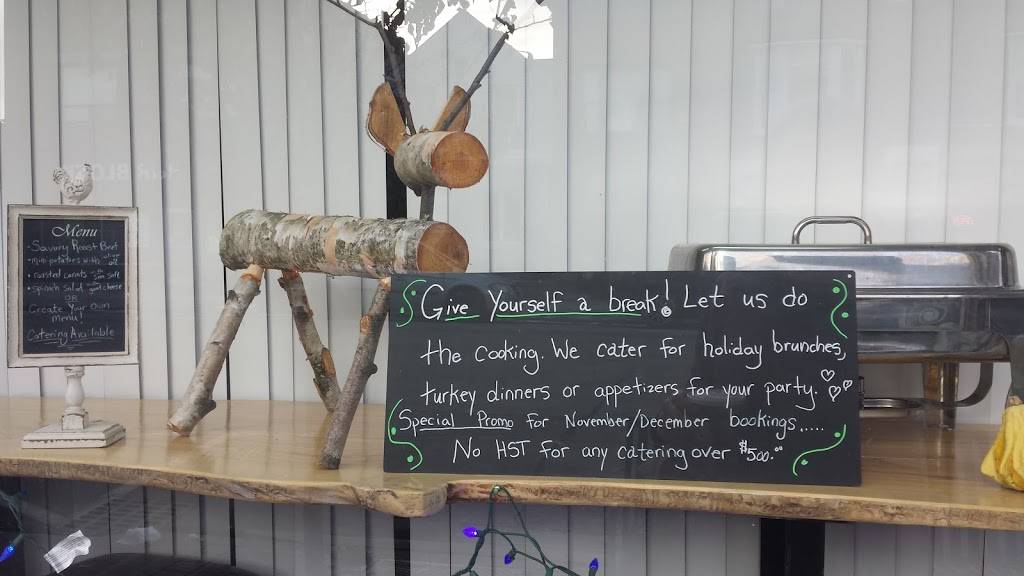 Menu
• Savory Roast Beef
• mini potatoes with
• roasted carrots
• spinach salad
OR
Create Your Own
menu!
Catering Available
Give Yourself a break! Let us do
the cooking. We cater for holiday brunches,
turkey dinners or appetizers for your party.
Special Promo for November/December bookings.....
No HST for any catering over $500.00